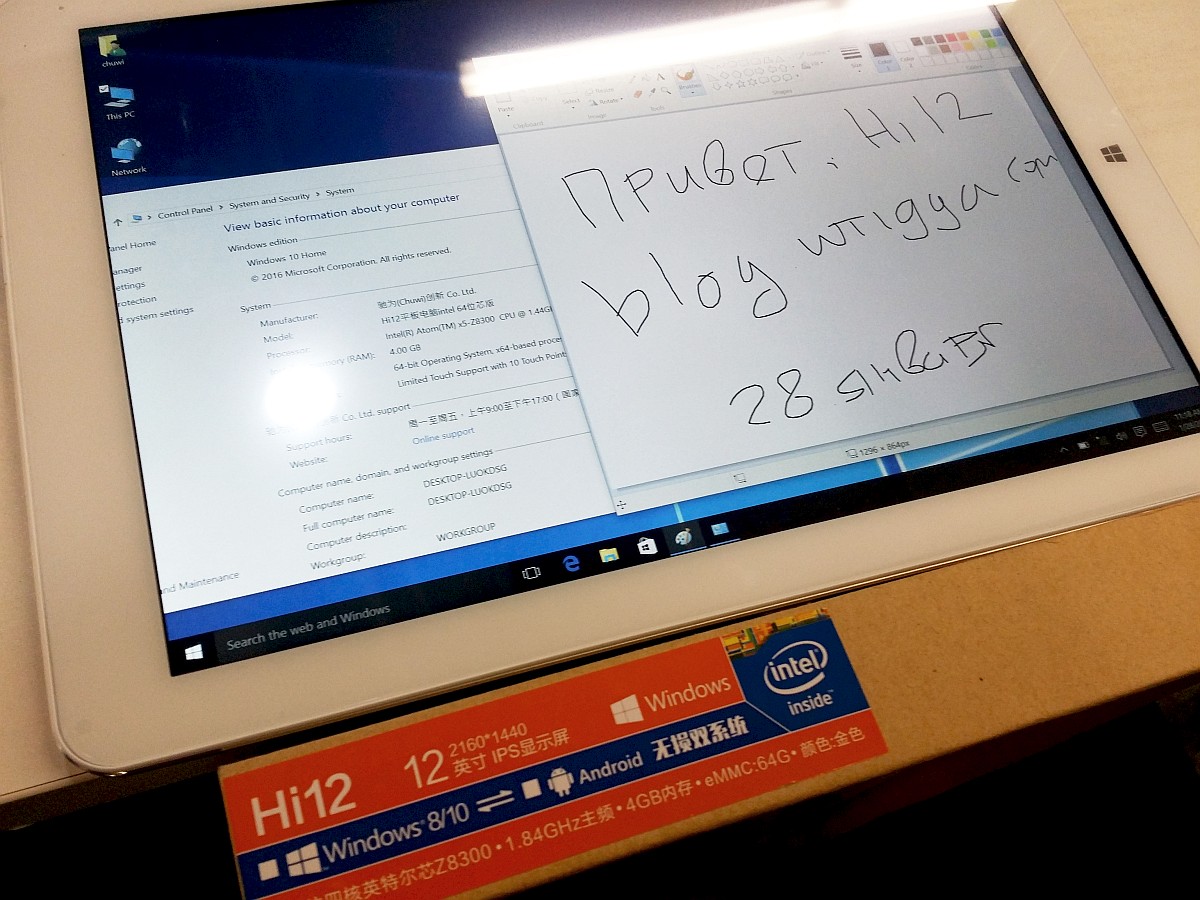 chuwi
This PC
Network
Control Panel > System and Security > System
View basic information about your computer
anel Home
anager
ettings
rotection
d system settings
and Maintenance
Windows edition
Windows 10 Home
© 2016 Microsoft Corporation. All rights reserved.
System
Manufacturer: 驰为(Chuwi)创新 Co. Ltd.
Model: Hi12平板电脑intel 64位芯版
Processor: Intel(R) Atom(TM) x5-Z8300 CPU @ 1.44G
(RAM): 4.00 GB
64-bit Operating System, x64-based proce
Limited Touch Support with 10 Touch Point
Co. Ltd. support
Support hours: 周一至周五，上午9:00至下午17:00
Website: Online support
Computer name, domain, and workgroup settings
Computer name: DESKTOP-LUOKDSG
Full computer name: DESKTOP-LUOKDSG
Computer description:
Workgroup: WORKGROUP
Paste
Clipboard
Select
Rotate
Image
Tools
Brushes
Shapes
Size
Color 1
Color 2
Colors
Привет: Hi12
blog
com
28
1296 × 864px
Search the web and Windows
Hi12
12 2160*1440
英寸 IPS显示屏
Windows
intel
inside™
Windows® 8/10 Android 无损双系统
四核英特尔芯Z8300•1.84GHz主频•4GB内存•eMMC:64G•颜色:金色